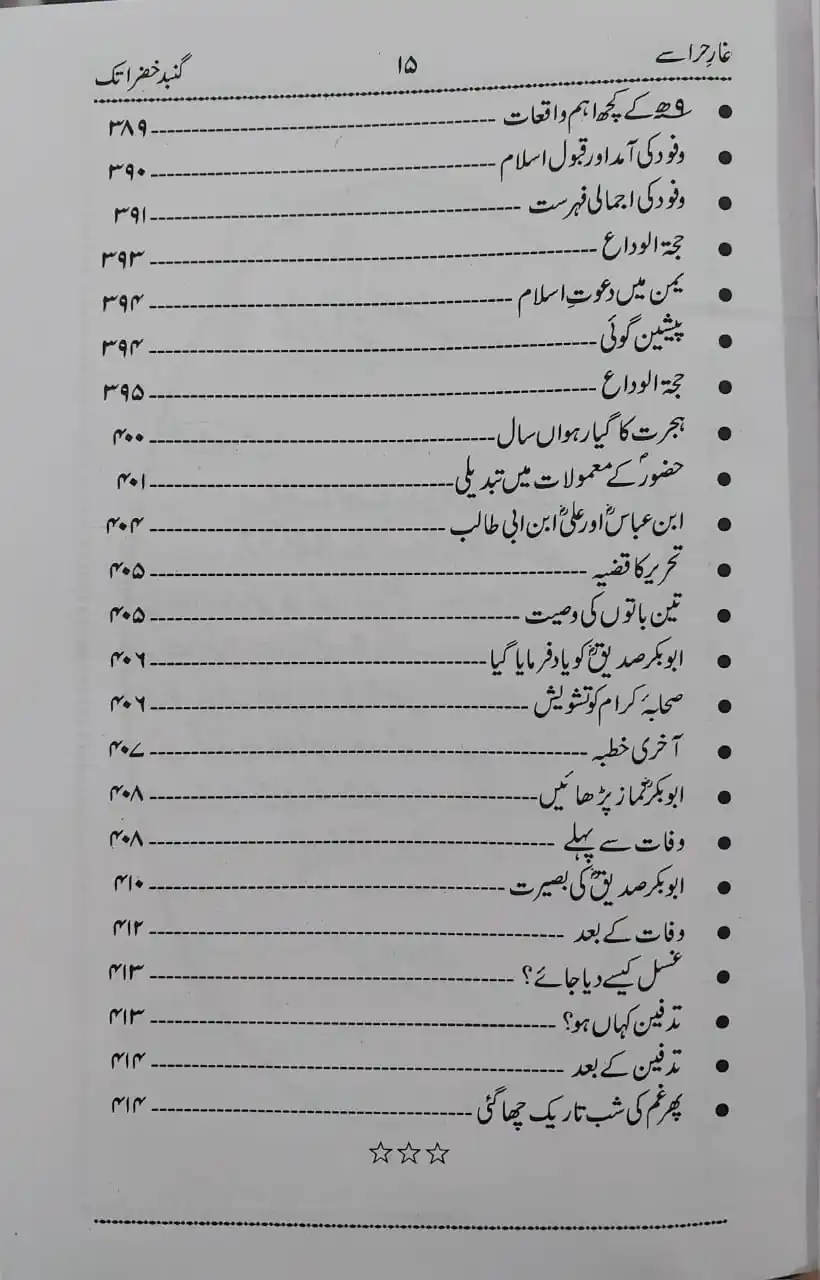 غارِ حرا سے ۱۵ گنبد خضرا تک
● ۹ھ کے کچھ اہم واقعات ---------- ۳۸۹
● وفود کی آمد اور قبول اسلام ---------- ۳۹۰
● وفود کی اجمالی فہرست ---------- ۳۹۱
● حجۃ الوداع ---------- ۳۹۳
● یمن میں دعوتِ اسلام ---------- ۳۹۴
● پیشین گوئی ---------- ۳۹۴
● حجۃ الوداع ---------- ۳۹۵
● ہجرت کا گیارہواں سال ---------- ۴۰۰
● حضورؐ کے معمولات میں تبدیلی ---------- ۴۰۱
● ابن عباسؓ اور علیؓ ابن ابی طالب ---------- ۴۰۴
● تحریر کا قضیہ ---------- ۴۰۵
● تین باتوں کی وصیت ---------- ۴۰۵
● ابوبکر صدیقؓ کو یاد فرمایا گیا ---------- ۴۰۶
● صحابۂ کرام کو تشویش ---------- ۴۰۶
● آخری خطبہ ---------- ۴۰۷
● ابوبکرؓ نماز پڑھائیں ---------- ۴۰۸
● وفات سے پہلے ---------- ۴۰۸
● ابوبکر صدیقؓ کی بصیرت ---------- ۴۱۰
● وفات کے بعد ---------- ۴۱۲
● غسل کیسے دیا جائے؟ ---------- ۴۱۳
● تدفین کہاں ہو؟ ---------- ۴۱۳
● تدفین کے بعد ---------- ۴۱۴
● پھر غم کی شب تاریک چھا گئی ---------- ۴۱۴
☆☆☆